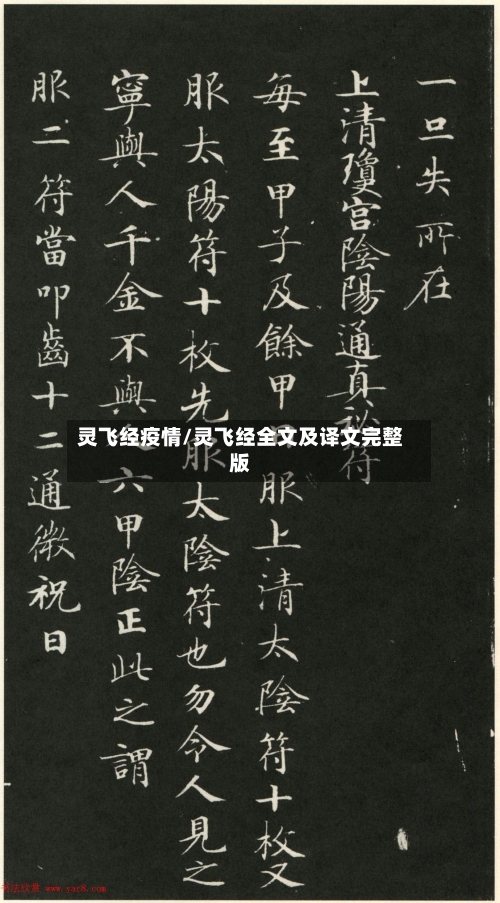 一旦失所在
上清瓊宮陰陽通真祕符
每至甲子及餘甲日服上清太陰符十枚又
服太陽符十枚先服太陰符也勿令人見之
寧與人千金不與六甲陰正此之謂
服二符當叩齒十二通微祝曰
灵飞经疫情/灵飞经全文及译文完整
版
书法欣赏 www.yac8.com